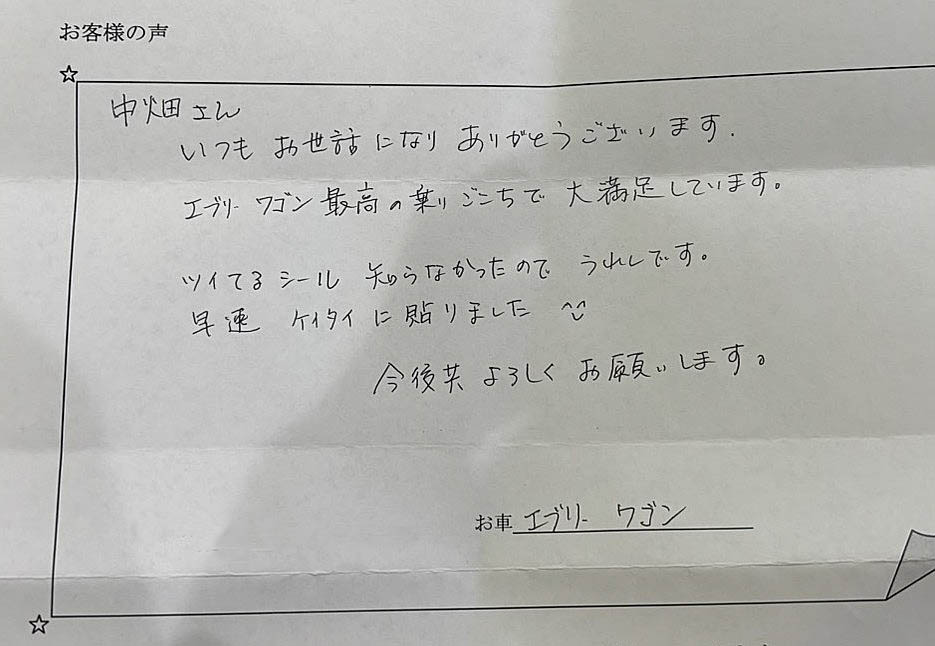 お客様の声
中畑さん
いつも お世話になり ありがとうございます.
エブリー ワゴン 最高の乗りごこちで 大満足しています。
ツイてるシール 知らなかったので うれしです。
早速 ケイタイに貼りました ^^
今後共 よろしく お願いします。
お車 エブリー ワゴン